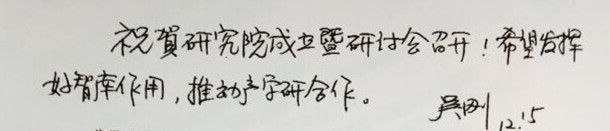 祝賀研究院成立暨研讨会召开！希望发挥
好智库作用，推动产学研合作。
吴刚
12.15